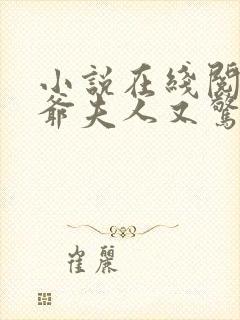 小說在綫閱
爺夫人又驚
崔麗